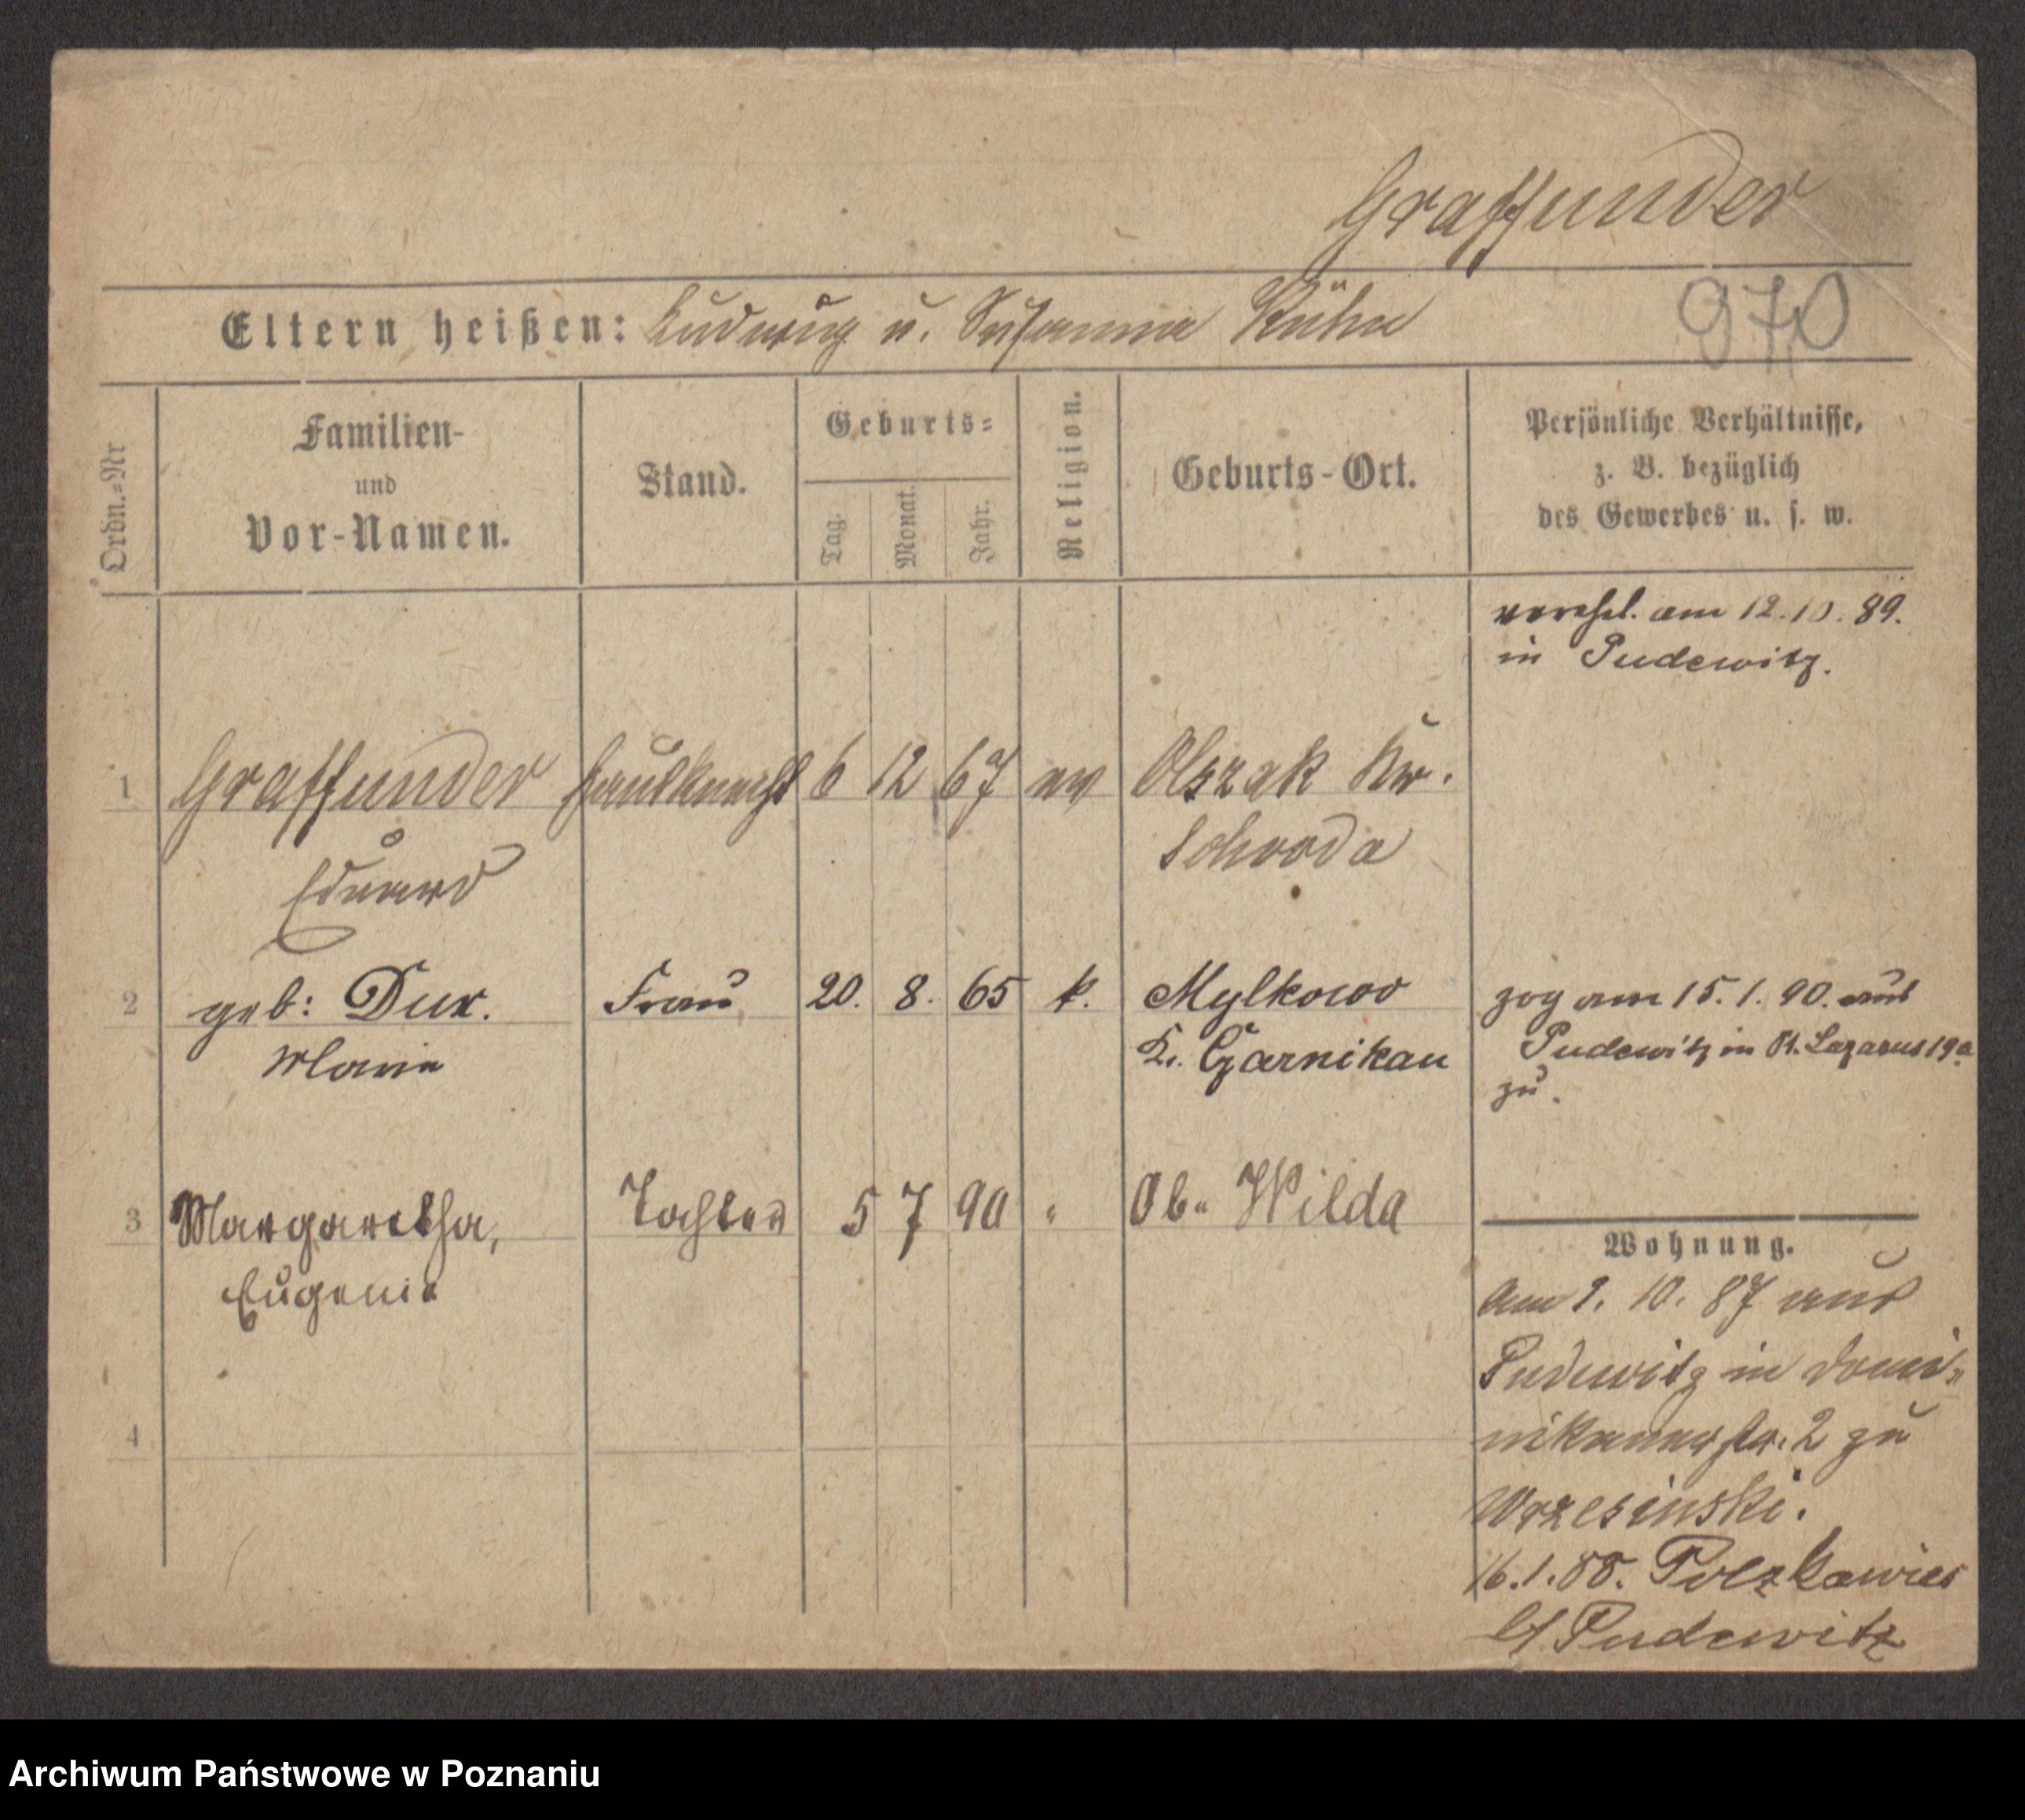 Graffunder
Eltern heißen: Ludwig u. Susanna Kühn
970
Ordn.=Nr
Familien-
und
Vor-Namen.
Stand.
Geburts=
Tag.
Monat.
Jahr.
Religion.
Geburts-Ort.
Persönliche Verhältnisse,
z. B. bezüglich
des Gewerbes u. s. w.
verehel. am 12.10.89.
in Pudewitz.
1 Graffunder Hausknecht 6 12 67 ev Olszak Kr.
Schroda
Eduard
2 geb: Dux. Frau 20. 8. 65 k. Mylkowo
Marie
Kr. Czarnikau
zog am 15.1.90. aus
Pudewitz in St. Lazarus 19a
zu.
3 Margaretha, Tochter 5 7 90 " Ob. Wilda
Eugenie
4
Wohnung.
Am 1. 10. 87 aus
Pudewitz in Domi=
nikanerstr. 2 zu
Wrzesinski.
16.1.88. Polzkawies
b/ Pudewitz
Archiwum Państwowe w Poznaniu